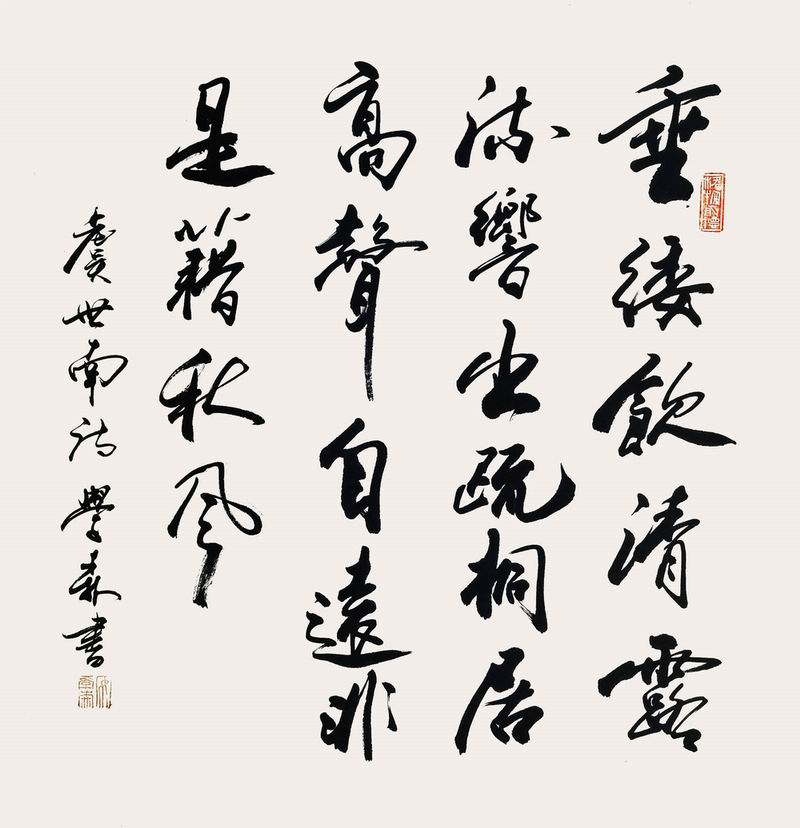 垂緌飲清露
流響出疏桐居
高聲自遠非
是籍秋風
虞世南詩學森書